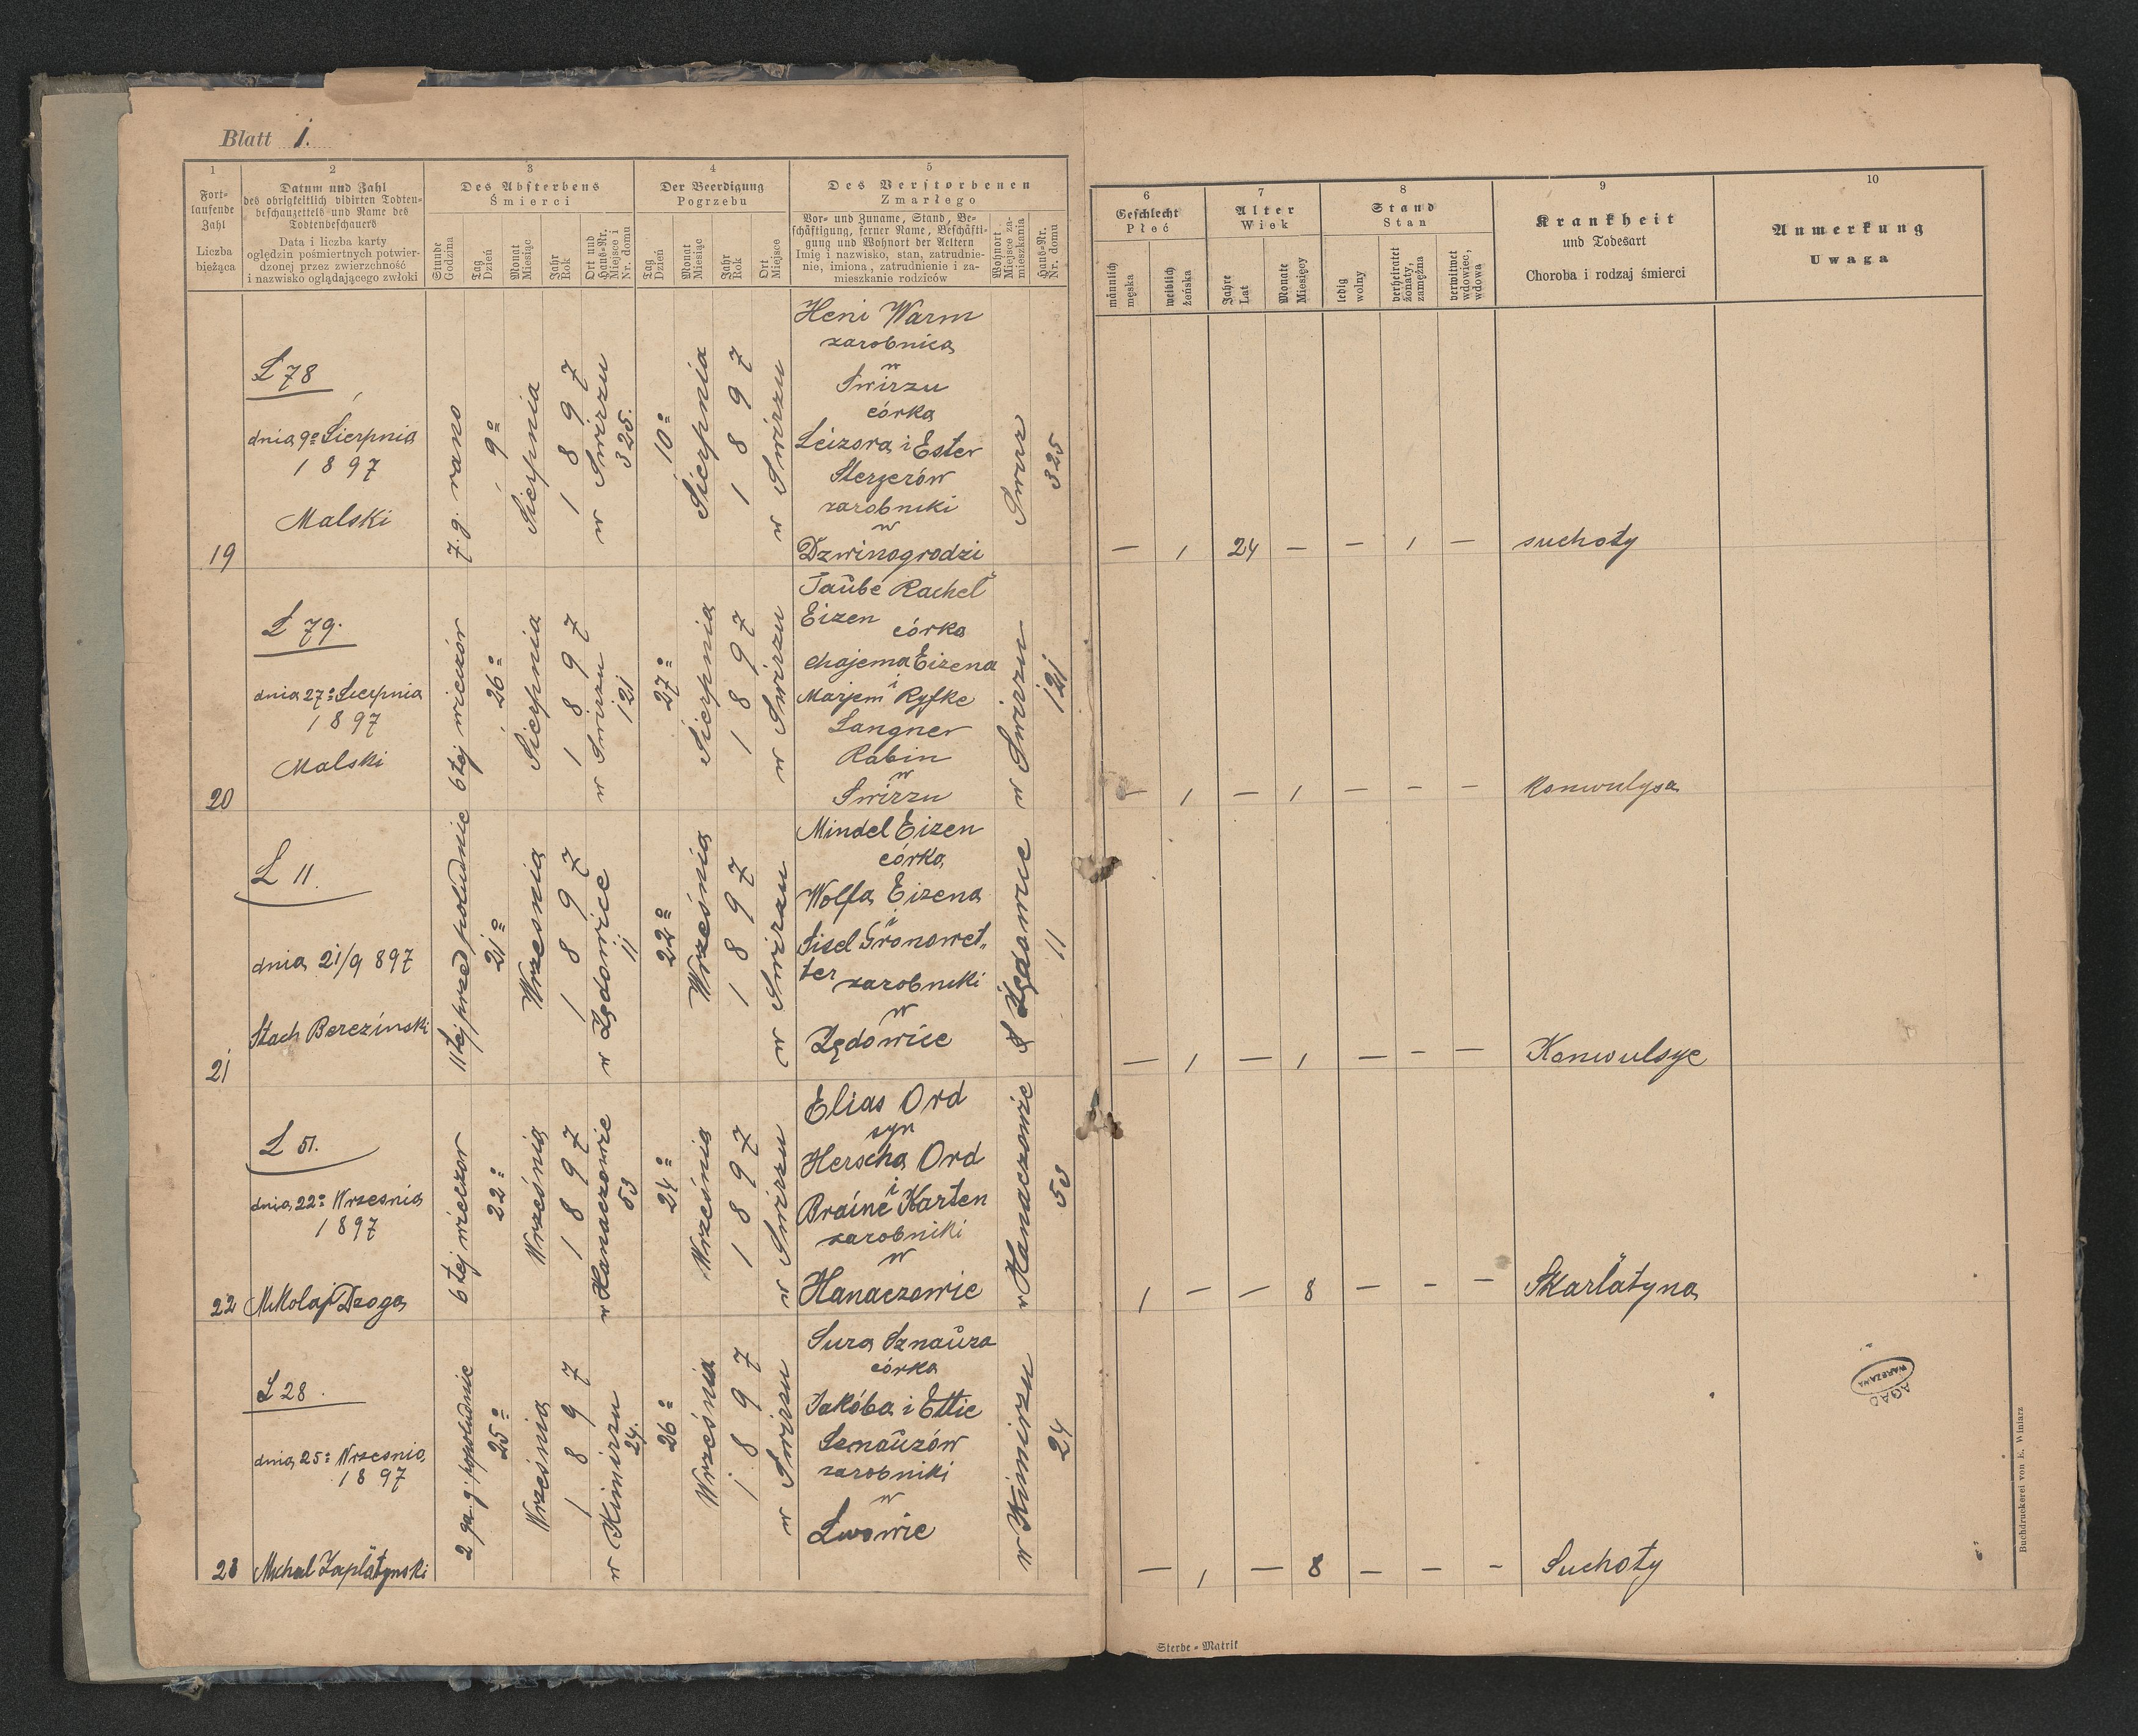 Blatt 1.
1
Fort-
laufende
Zahl
Liczba
bieżąca
2
Datum und Zahl
des obrigkeitlich vidirten Todten-
beschauzettels und Name des
Todtenbeschauers
Data i liczba karty
oględzin pośmiertnych potwier-
dzonej przez zwierzchność
i nazwisko oglądającego zwłoki
3
Des Absterbens
Śmierci
Stunde
Godzina
Tag
Dzień
Monat
Miesiąc
Jahr
Rok
Ort und
Haus-Nr.
Miejsce i
Nr. domu
4
Der Beerdigung
Pogrzebu
Tag
Dzień
Monat
Miesiąc
Jahr
Rok
Ort
Miejsce
5
Des Verstorbenen
Zmarłego
Vor- und Zuname, Stand, Be-
schäftigung, ferner Name, Beschäfti-
gung und Wohnort der Aeltern
Imię i nazwisko, stan, zatrudnie-
nie, imiona, zatrudnienie i za-
mieszkanie rodziców
Wohnort
Miejsce za-
mieszkania
Haus-Nr.
Nr. domu
6
Geschlecht
Płeć
männlich
męska
weiblich
żeńska
7
Alter
Wiek
Jahre
Lat
Monate
Miesięcy
8
Stand
Stan
ledig
wolny
verheiratet
żonaty,
zamężna
verwitwet
wdowiec,
wdowa
9
Krankheit
und Todesart
Choroba i rodzaj śmierci
10
Anmerkung
Uwaga
19
L 78
dnia 9º Sierpnia
1897
Malski
7. g. rano
9º
Sierpnia
1897
w Swirzu
325.
10º
Sierpnia
1897
w Swirzu
Heni Warm
zarobnica
w
Swirzu
córka
Leizora i Ester
Sterzerów
zarobniki
w
Dzwinogrodzi
Swirz
325
— 1 24 — — 1 —
suchoty
20
L 79.
dnia 27º Sierpnia
1897
Malski
6tej wieczór
26º
Sierpnia
1897
w Swirzu
121
27º
Sierpnia
1897
w Swirzu
Taube Rachel
Eizen córka
chajema Eizena
i
Marjem Ryfke
Langner
Rabin
w
Swirzu
w Swirzu
121
— 1 — 1 — — —
Konwulysa
21
L 11.
dnia 21/9 897
Stach Berezinski
11tej przed południe
21º
Wrzesnia
1897
w Lędowice
11
22º
Września
1897
w Swirzu
Mindel Eizen
córka
Wolfa Eizena
i
Sisel Gronowet„
ter zarobniki
w
Lędowice
Lędowice
11
— 1 — 1 — — —
Konwulsye
22
L 51.
dnia 22º Wrzesnia
1897
Mikolaj Dzoga
6tej wieczor
22º
Września
1897
w Hanaczowie
53
24º
Września
1897
w Swirzu
Elias Ord
syn
Herscha Ord
i
Braine Karten
zarobniki
w
Hanaczowie
w Hanaczowie
53
1 — — 8 — — —
Skarlatyna
23
L 28.
dnia 25º Wrzesnia
1897
Michal Zaplatynski
2ga g. popołudnie
25º
Września
1897
w Kimirzu
24.
26º
Września
1897
w Swirzu
Sura Sznauza
córka
Jakóba i Ettie
Sznauzów
zarobniki
w
Lwowie
w Kimirzu
24
— 1 — 8 — — —
Suchoty
AGAD
WARSZAWA
Buchdruckerei von E. Winiarz
Sterbe-Matrik